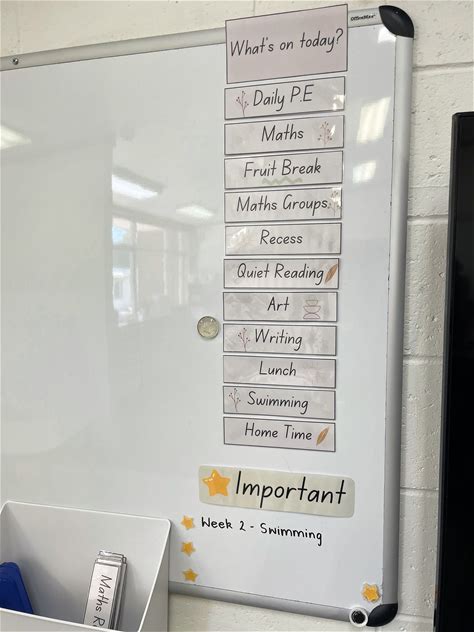 OfficeMax
What's on today?
Daily P.E
Maths
Fruit Break
Maths Groups
Recess
Quiet Reading
Art
Writing
Lunch
Swimming
Home Time
Important
Week 2 - Swimming
Maths